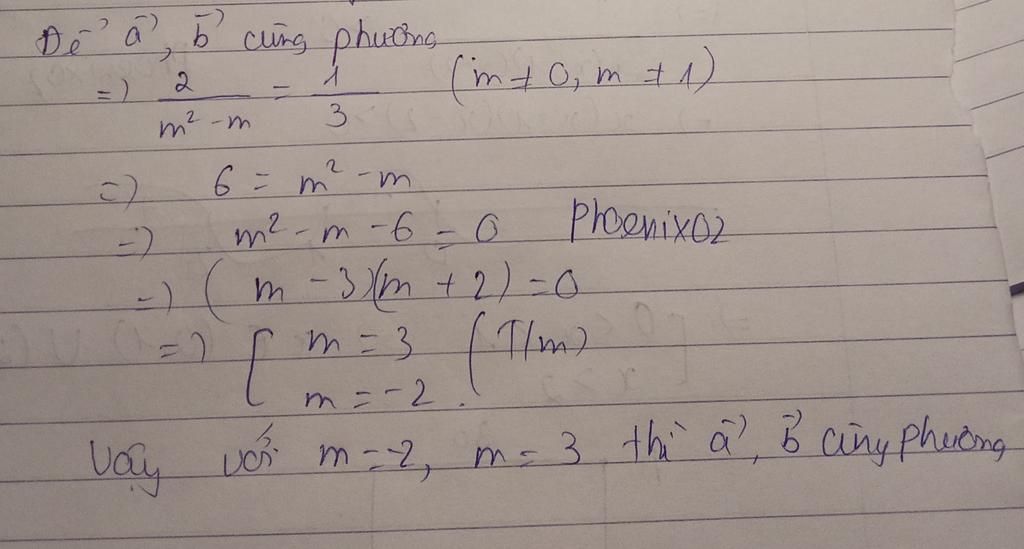 Để a⃗, b⃗ cùng phương
=> 2/(m² - m) = 1/3 (m ≠ 0, m ≠ 1)
=> 6 = m² - m
=> m² - m - 6 = 0 Phoenix02
=> (m - 3)(m + 2) = 0
=> [ m = 3 (T/m)
m = -2.
Vậy với m = -2, m = 3 thì a⃗, b⃗ cùng phương